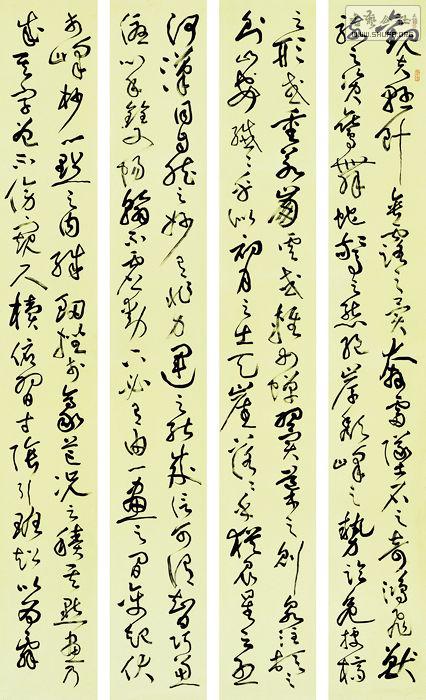 觀夫懸針垂露之異奔雷墜石之奇鴻飛獸
駭之資鸞舞蛇驚之態絕岸頹峰之勢臨危據槁
之形或重若崩雲或輕如蟬翼導之則泉注頓之
則山安纖纖乎似初月之出天崖落落乎猶眾星之列
河漢同自然之妙有非力運之能成信可謂智巧兼
優心手雙暢翰不虛動下必有由一畫之間變起伏
於峰杪一點之內殊衄挫於毫芒況云積其點畫乃
成其字曾不傍窺尺牘俯習寸陰引班超以為辭